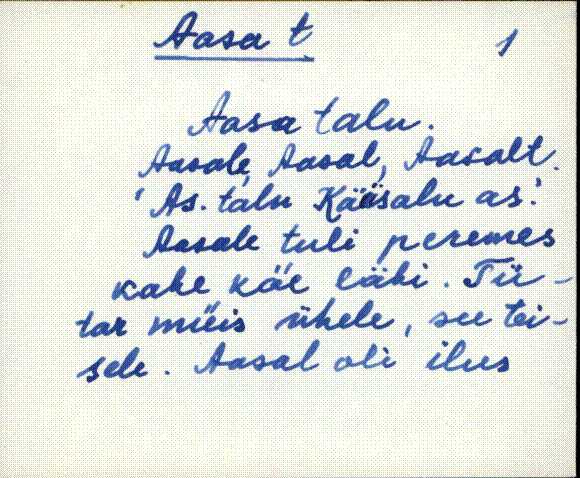 Aasa t
1
Aasa talu.
Aasale, Aasal, Aasalt.
'As. talu Kääsalu as.'
Aasale tuli peremes
kahe käe läbi. Tü-
tar müis ühele, see tei-
sele. Aasal oli ilus